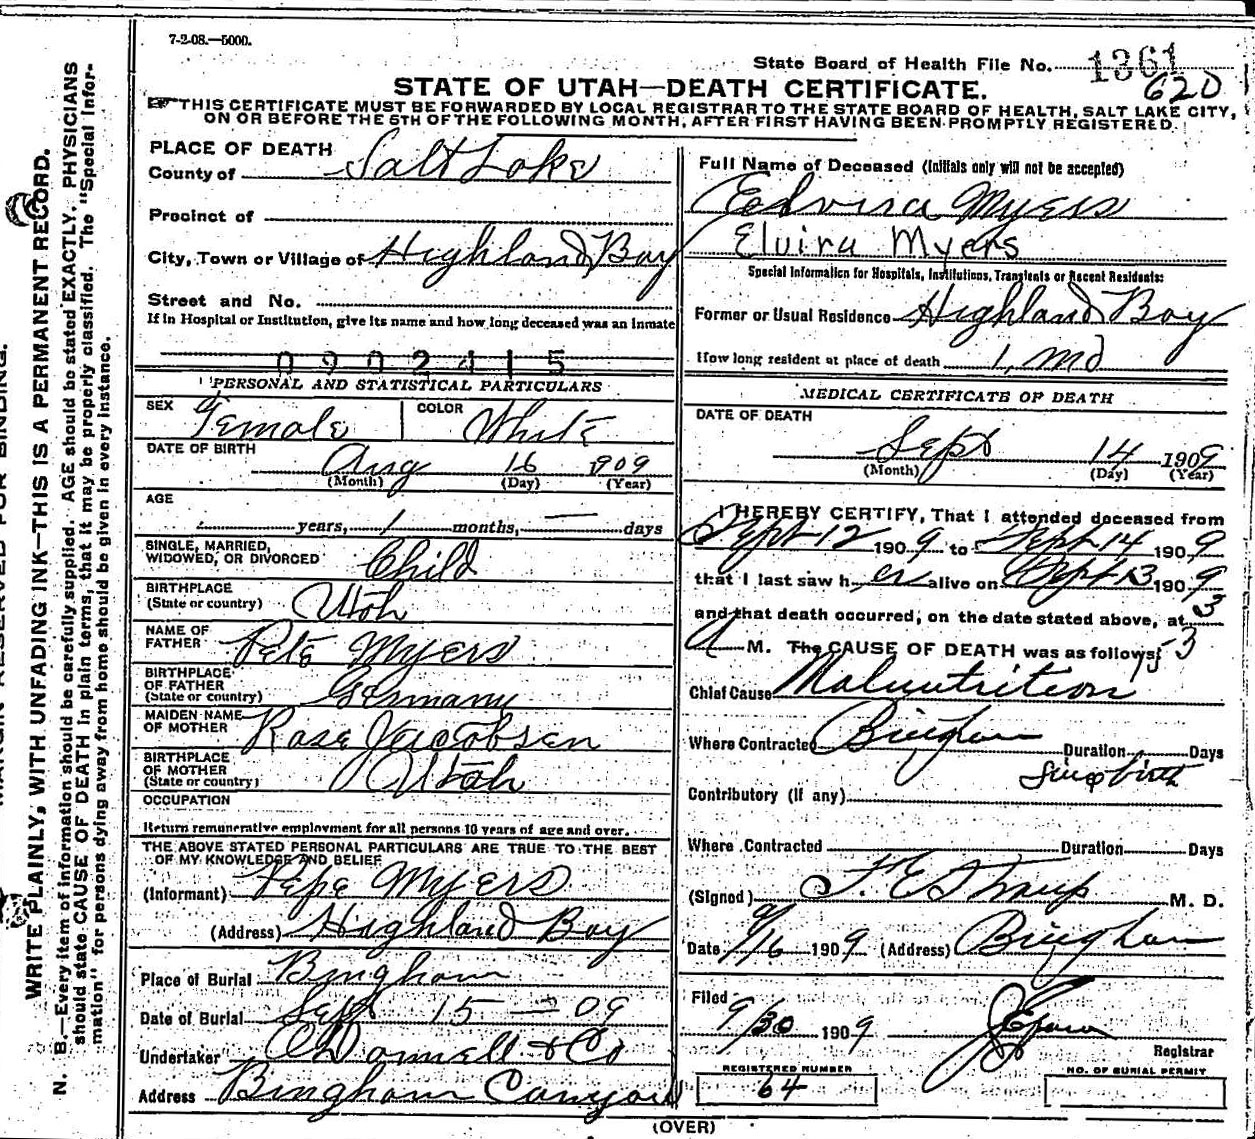 7-2-08.—5000.
State Board of Health File No. 1361
620
STATE OF UTAH—DEATH CERTIFICATE.
THIS CERTIFICATE MUST BE FORWARDED BY LOCAL REGISTRAR TO THE STATE BOARD OF HEALTH, SALT LAKE CITY,
ON OR BEFORE THE 5TH OF THE FOLLOWING MONTH, AFTER FIRST HAVING BEEN PROMPTLY REGISTERED.
PLACE OF DEATH
County of Salt Lake
Precinct of
City, Town or Village of Highland Boy
Street and No.
If in Hospital or Institution, give its name and how long deceased was an inmate
0902415
PERSONAL AND STATISTICAL PARTICULARS
SEX Female COLOR White
DATE OF BIRTH
Aug 16 1909
(Month) (Day) (Year)
AGE
years, 1 months, — days
SINGLE, MARRIED,
WIDOWED, OR DIVORCED Child
BIRTHPLACE
(State or country) Utah
NAME OF
FATHER Pete Myers
BIRTHPLACE
OF FATHER
(State or country) Germany
MAIDEN NAME
OF MOTHER Rose Jacobsen
BIRTHPLACE
OF MOTHER
(State or country) Utah
OCCUPATION
Return remunerative employment for all persons 10 years of age and over.
THE ABOVE STATED PERSONAL PARTICULARS ARE TRUE TO THE BEST
OF MY KNOWLEDGE AND BELIEF
(Informant) Pepe Myers
(Address) Highland Boy
Place of Burial Bingham
Date of Burial Sept 15 - 09
Undertaker O'Donnell & Co
Address Bingham Canyon
Full Name of Deceased (Initials only will not be accepted)
Edvira Myers
Elvira Myers
Special Information for Hospitals, Institutions, Transients or Recent Residents:
Former or Usual Residence Highland Boy
How long resident at place of death 1 mo
MEDICAL CERTIFICATE OF DEATH
DATE OF DEATH
Sept 14 1909
(Month) (Day) (Year)
I HEREBY CERTIFY, That I attended deceased from
Sept 12 190 9 to Sept 14 190 9
that I last saw h er alive on Sept 13 190 9
and that death occurred, on the date stated above, at 3
A M. The CAUSE OF DEATH was as follows:
153
Chief Cause Malnutrition
Where Contracted Bingham Duration Days
Since birth
Contributory (If any)
Where Contracted Duration Days
(Signed) F. E. Straup M. D.
Date 9/16 190 9 (Address) Bingham
Filed
9/30 190 9
Registrar
REGISTERED NUMBER
64
NO. OF BURIAL PERMIT
(OVER)
MARGIN RESERVED FOR BINDING.
WRITE PLAINLY, WITH UNFADING INK—THIS IS A PERMANENT RECORD.
N. B.—Every item of information should be carefully supplied. AGE should be stated EXACTLY. PHYSICIANS
should state CAUSE OF DEATH in plain terms, that it may be properly classified. The "Special Infor-
mation" for persons dying away from home should be given in every instance.